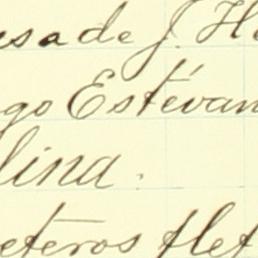 esa de J. He
go Estévan
lina.
eteros flet